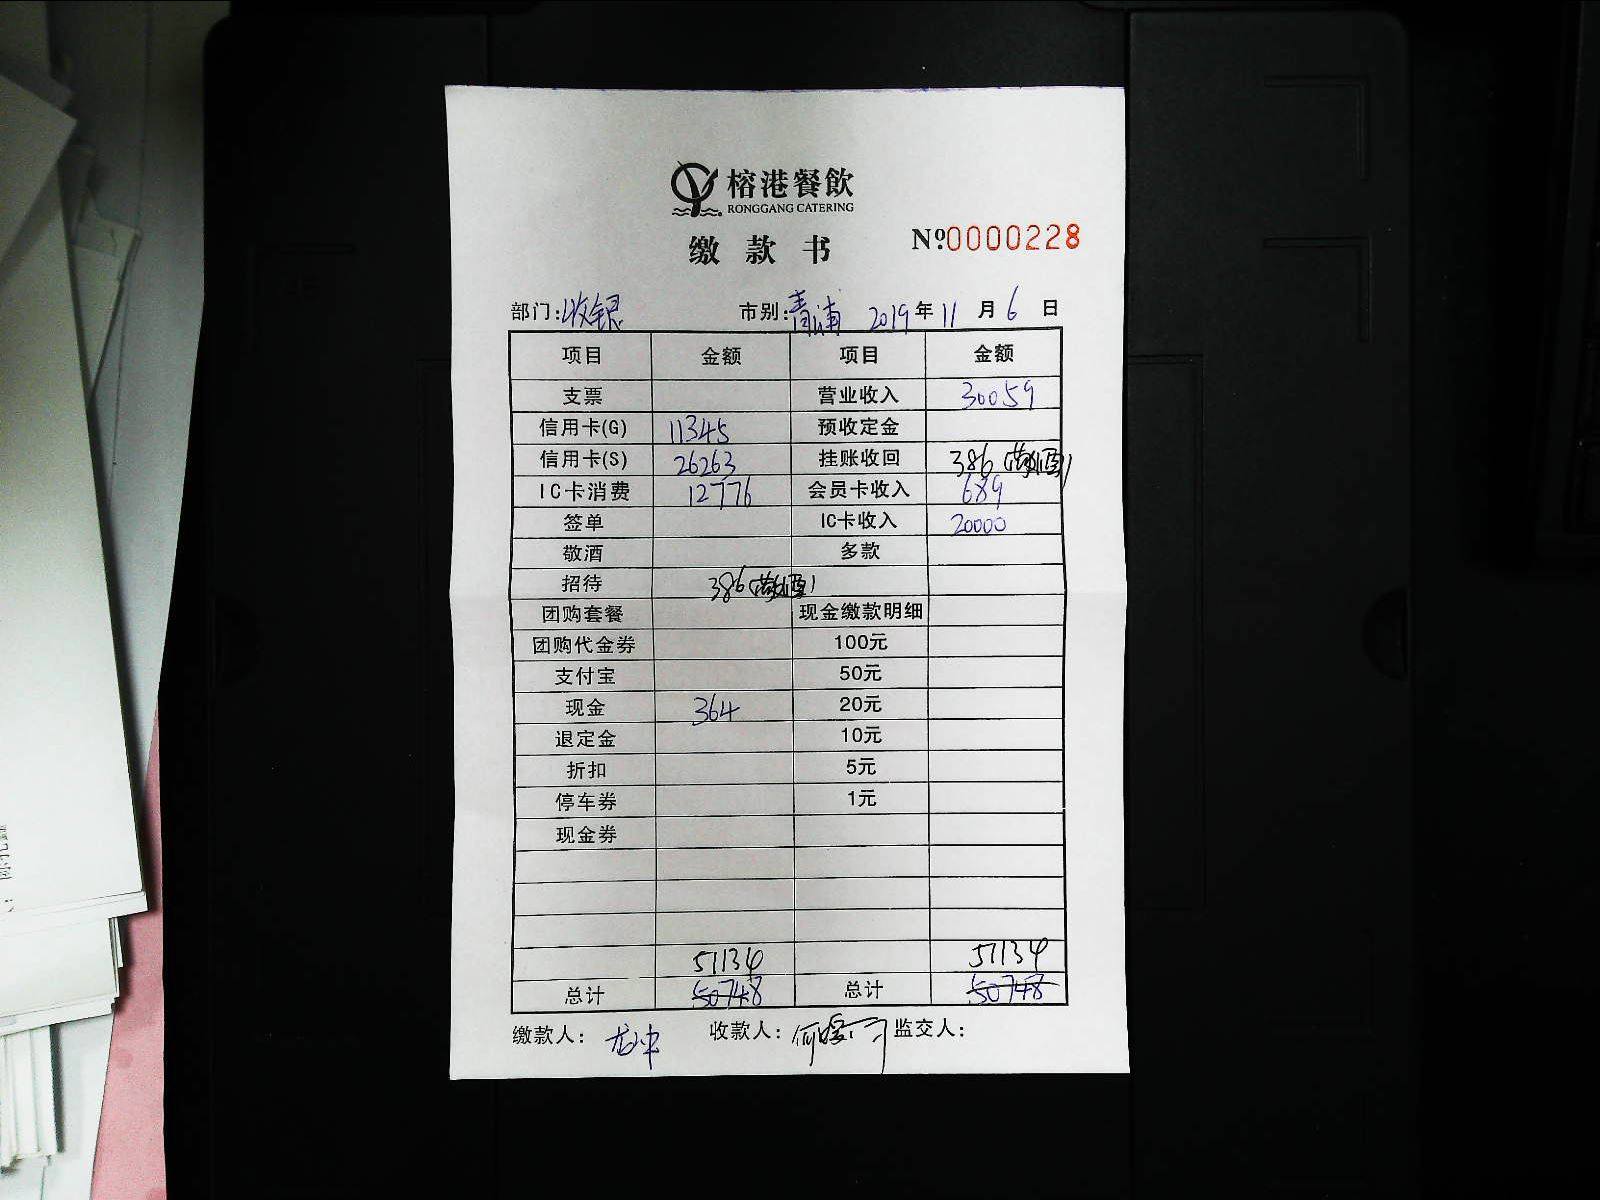 榕港餐飲
RONGGANG CATERING
缴款书
Nº0000228
部门:收银 市别:青浦 2019年11月6日
项目 金额 项目 金额
支票 营业收入 30059
信用卡(G) 11345 预收定金
信用卡(S) 26263 挂账收回 386(敬酒)
IC卡消费 12776 会员卡收入 689
签单 IC卡收入 20000
敬酒 多款
招待 386(敬酒)
团购套餐 现金缴款明细
团购代金券 100元
支付宝 50元
现金 364 20元
退定金 10元
折扣 5元
停车券 1元
现金券
51134 51134
总计 50748 总计 50748
缴款人: 收款人: 监交人: